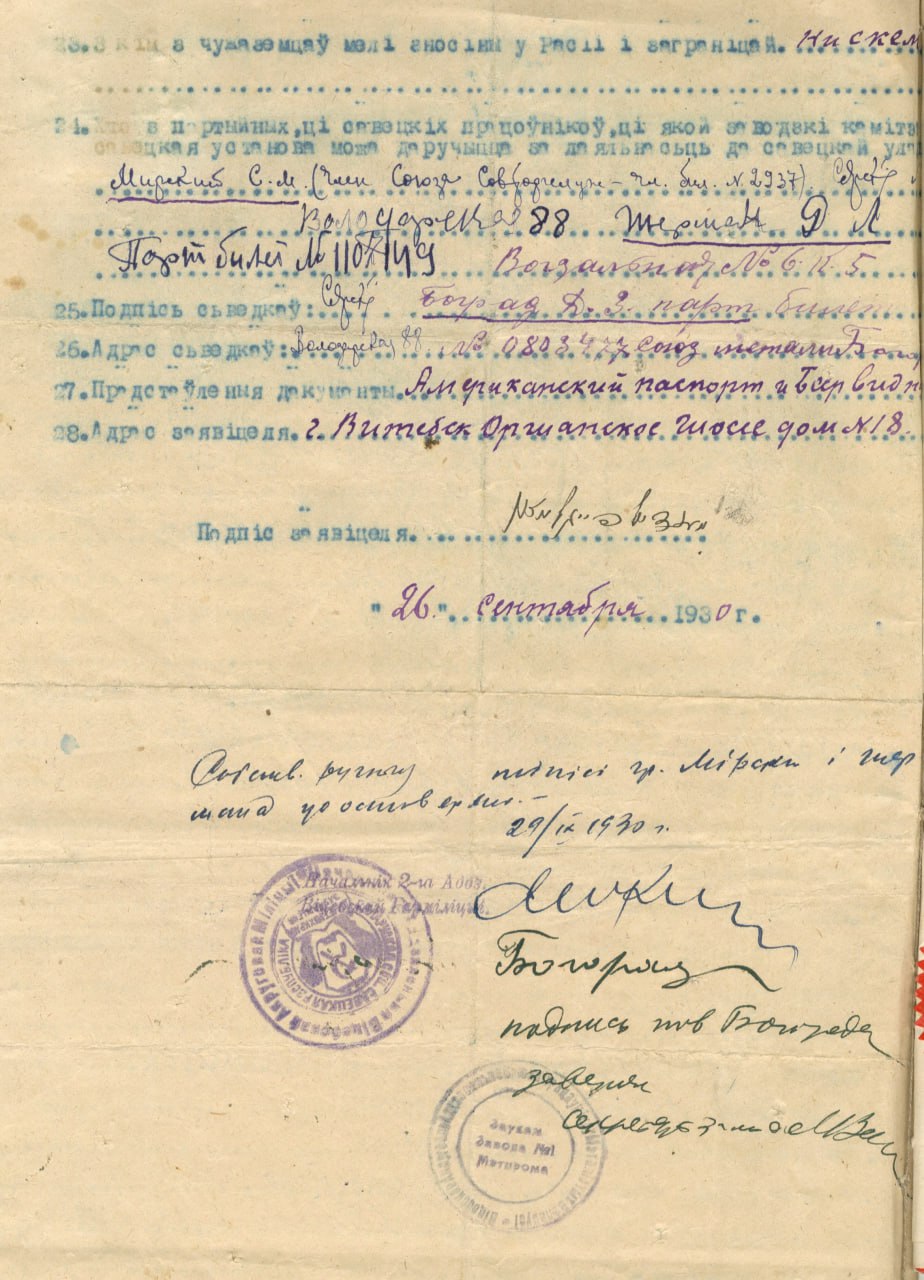 23. З кім з чужаземцаў мелі зносіны у Расіі і заграніцай. ни с кем
24. Хто з партыйных, ці савецкіх працоўнікоў, ці якой заводзкі каміта
савецкая установа можа даручыцца за лаяльнасьць да савецкай ула
Мирский С. М. (член Союза Совторгслуж - чл. бил. N. 2937)
Володарского 88 Шерман Д Л
Парт билет № 1107149 Вокзальная № 6. К. 5
25. Подпісь сьведкаў: Боград Д. З. парт билет
26. Адрас сьведкаў: Володарского 88 № 0803477 союз метали
27. Прадстаўленыя дакументы. Американский паспорт и
28. Адрас заявіцеля. г. Витебск Оршанское Шоссе дом N 18.
Подпіс заявіцеля.
"26" сентября 1930 г.
подпісі гр. Мірски і Шер
мана удостоверяю. -
29/IX 1930 г.
Начальнік 2-га Адз.
Віцебскай Гарміліцыі.
Боград
подпись тов Бограда
заверяю
Заўкам
Завода №1
Мэтпрома